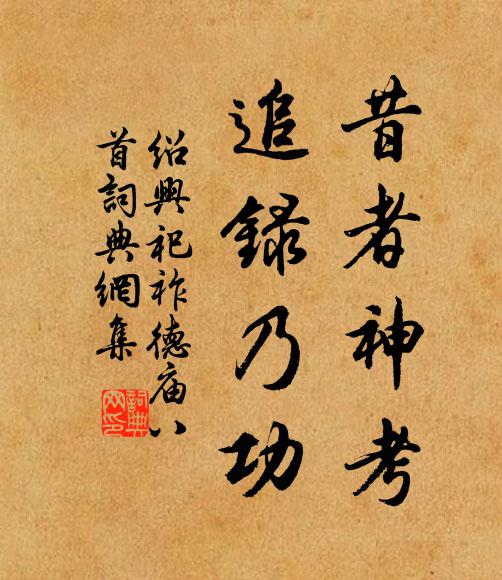 昔者神考
追録乃功
绍興祀祚德庙八
首詞典網集
詞典
网印